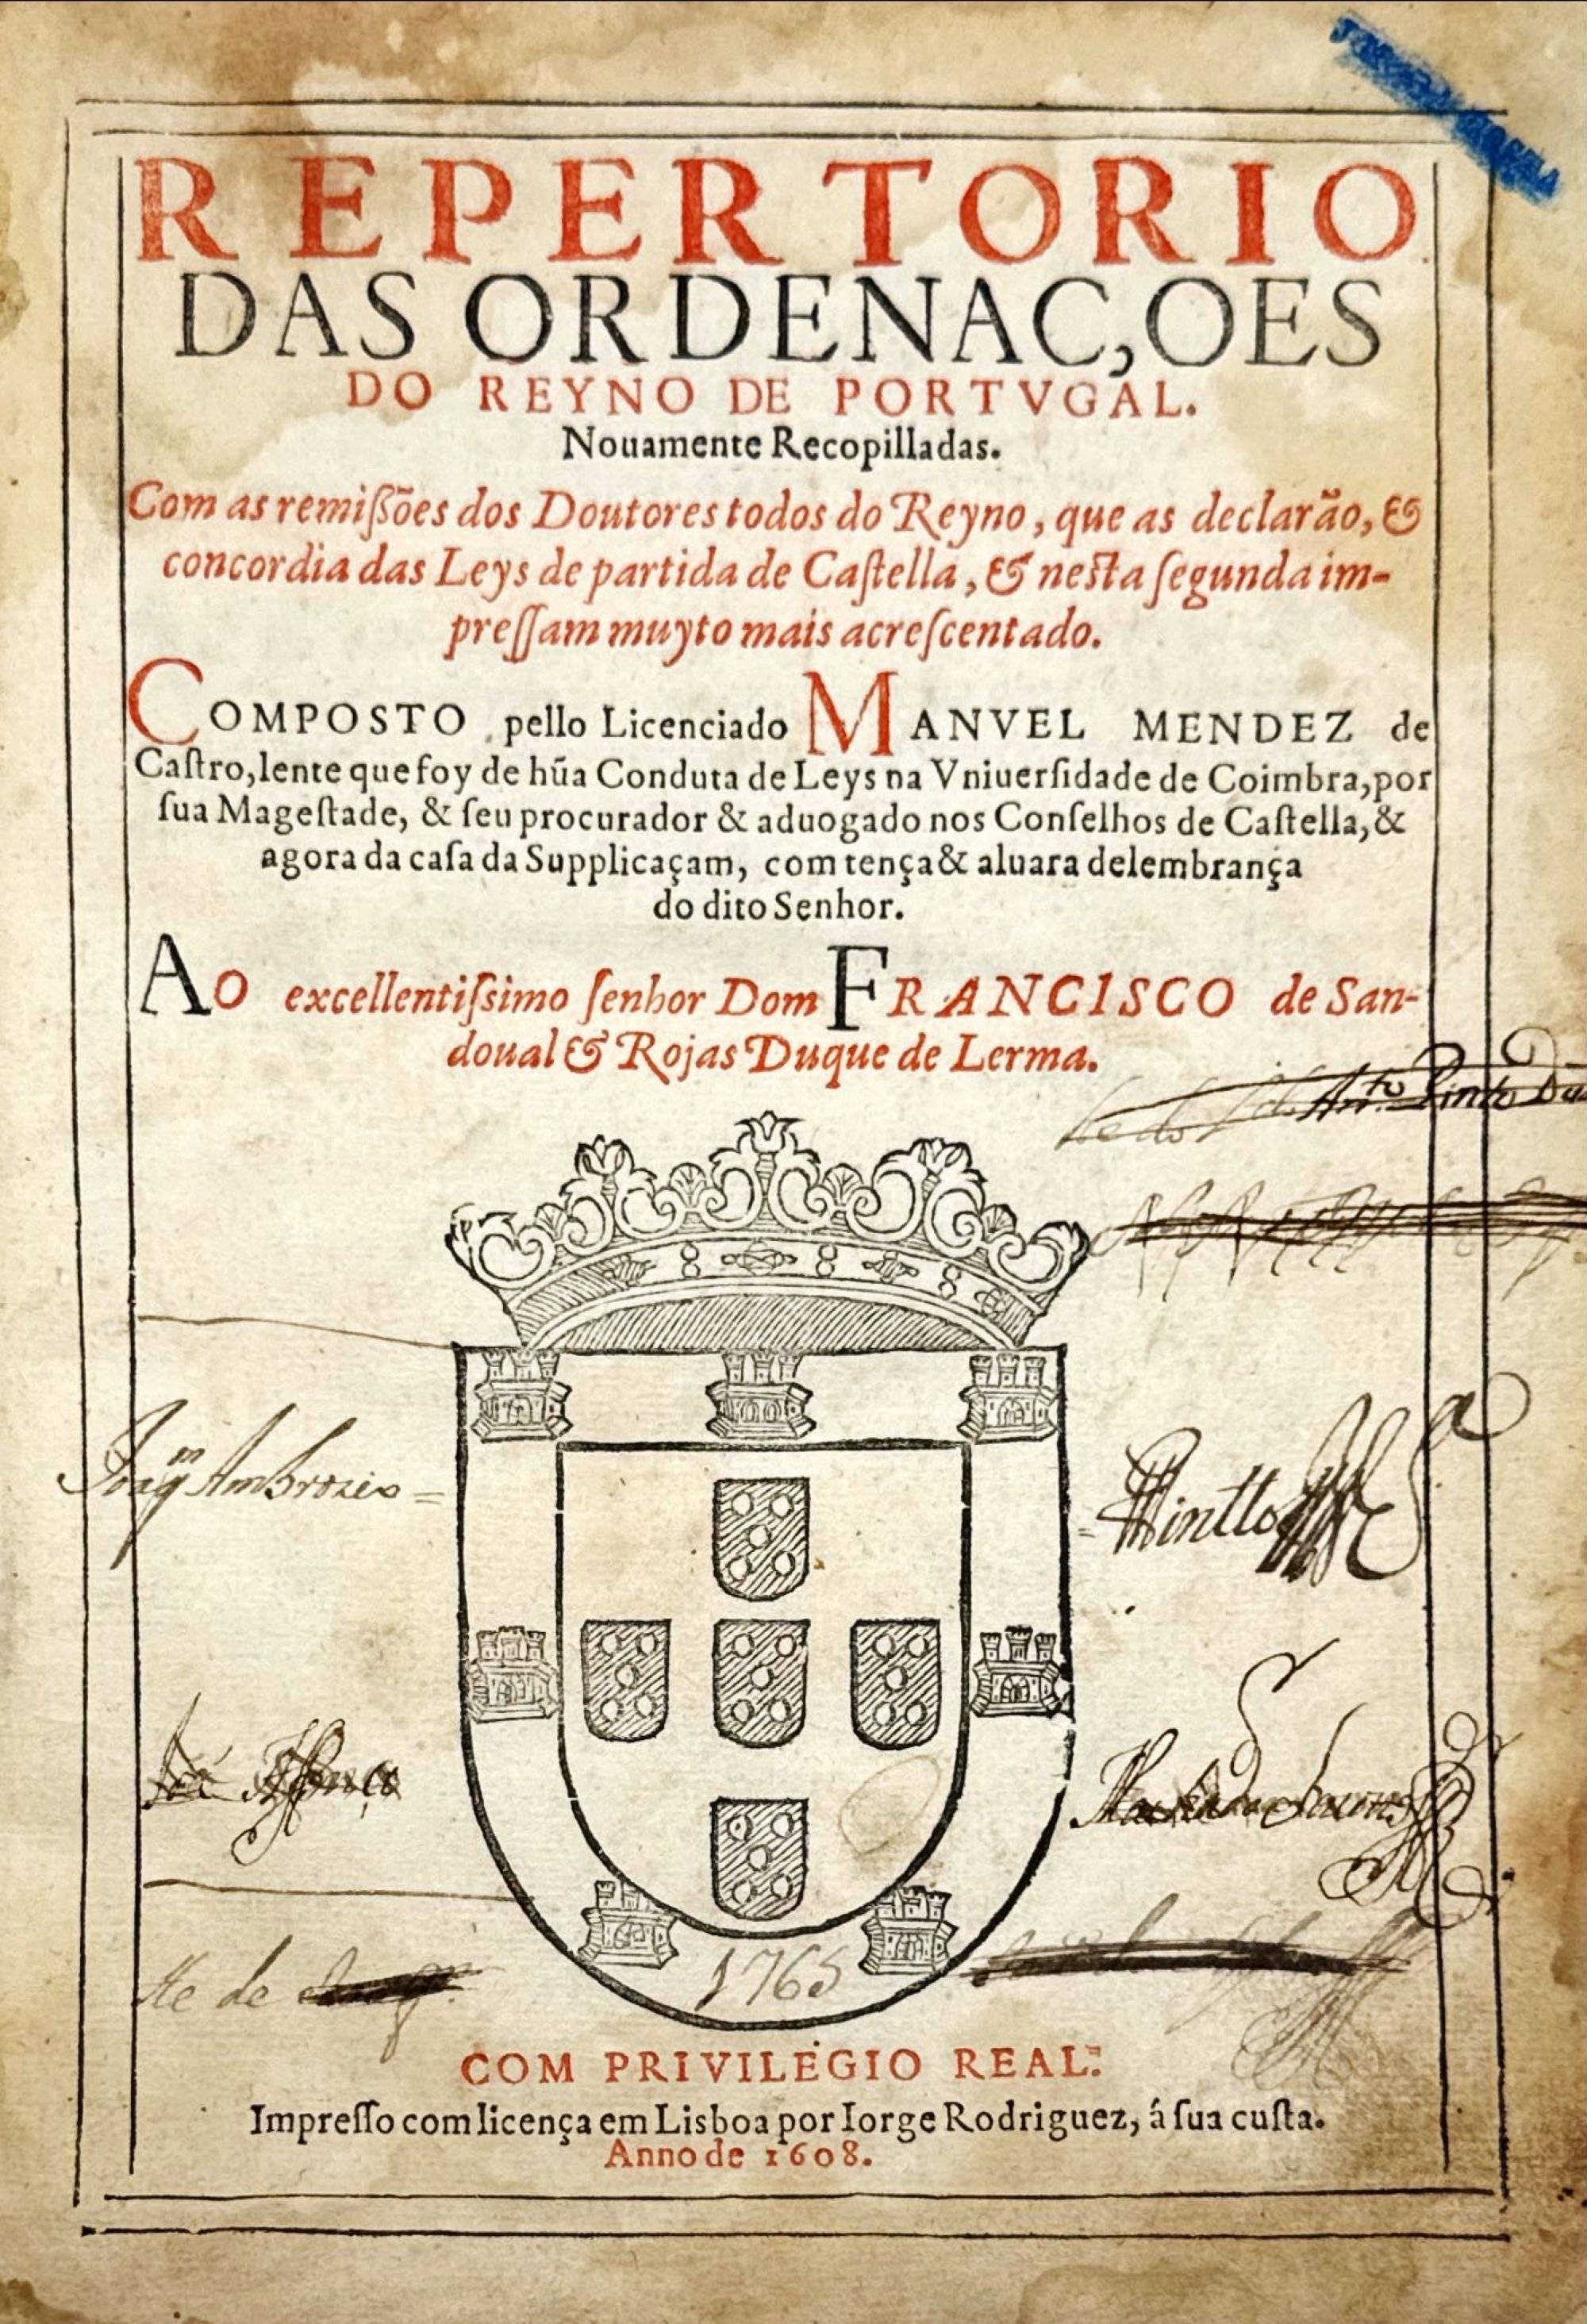 REPERTORIO
DAS ORDENAC,OES
DO REYNO DE PORTVGAL.
Nouamente Recopilladas.
Com as remißões dos Doutores todos do Reyno, que as declarão, &
concordia das Leys de partida de Caſtella, & neſta ſegunda im-
preſſam muyto mais acreſcentado.
COMPOSTO pello Licenciado MANVEL MENDEZ de
Caſtro, lente que foy de hũa Conduta de Leys na Vniuerſidade de Coimbra, por
ſua Mageſtade, & ſeu procurador & aduogado nos Conſelhos de Caſtella, &
agora da caſa da Supplicaçam, com tença & aluara de lembrança
do dito Senhor.
AO excellentiſsimo ſenhor Dom FRANCISCO de San-
doual & Rojas Duque de Lerma.
Ant.to Pinto
Joaq.m Ambrozio =
= Pintto
de
1765
COM PRIVILEGIO REAL.
Impreſſo com licença em Lisboa por Iorge Rodriguez, á ſua cuſta.
Anno de 1608.